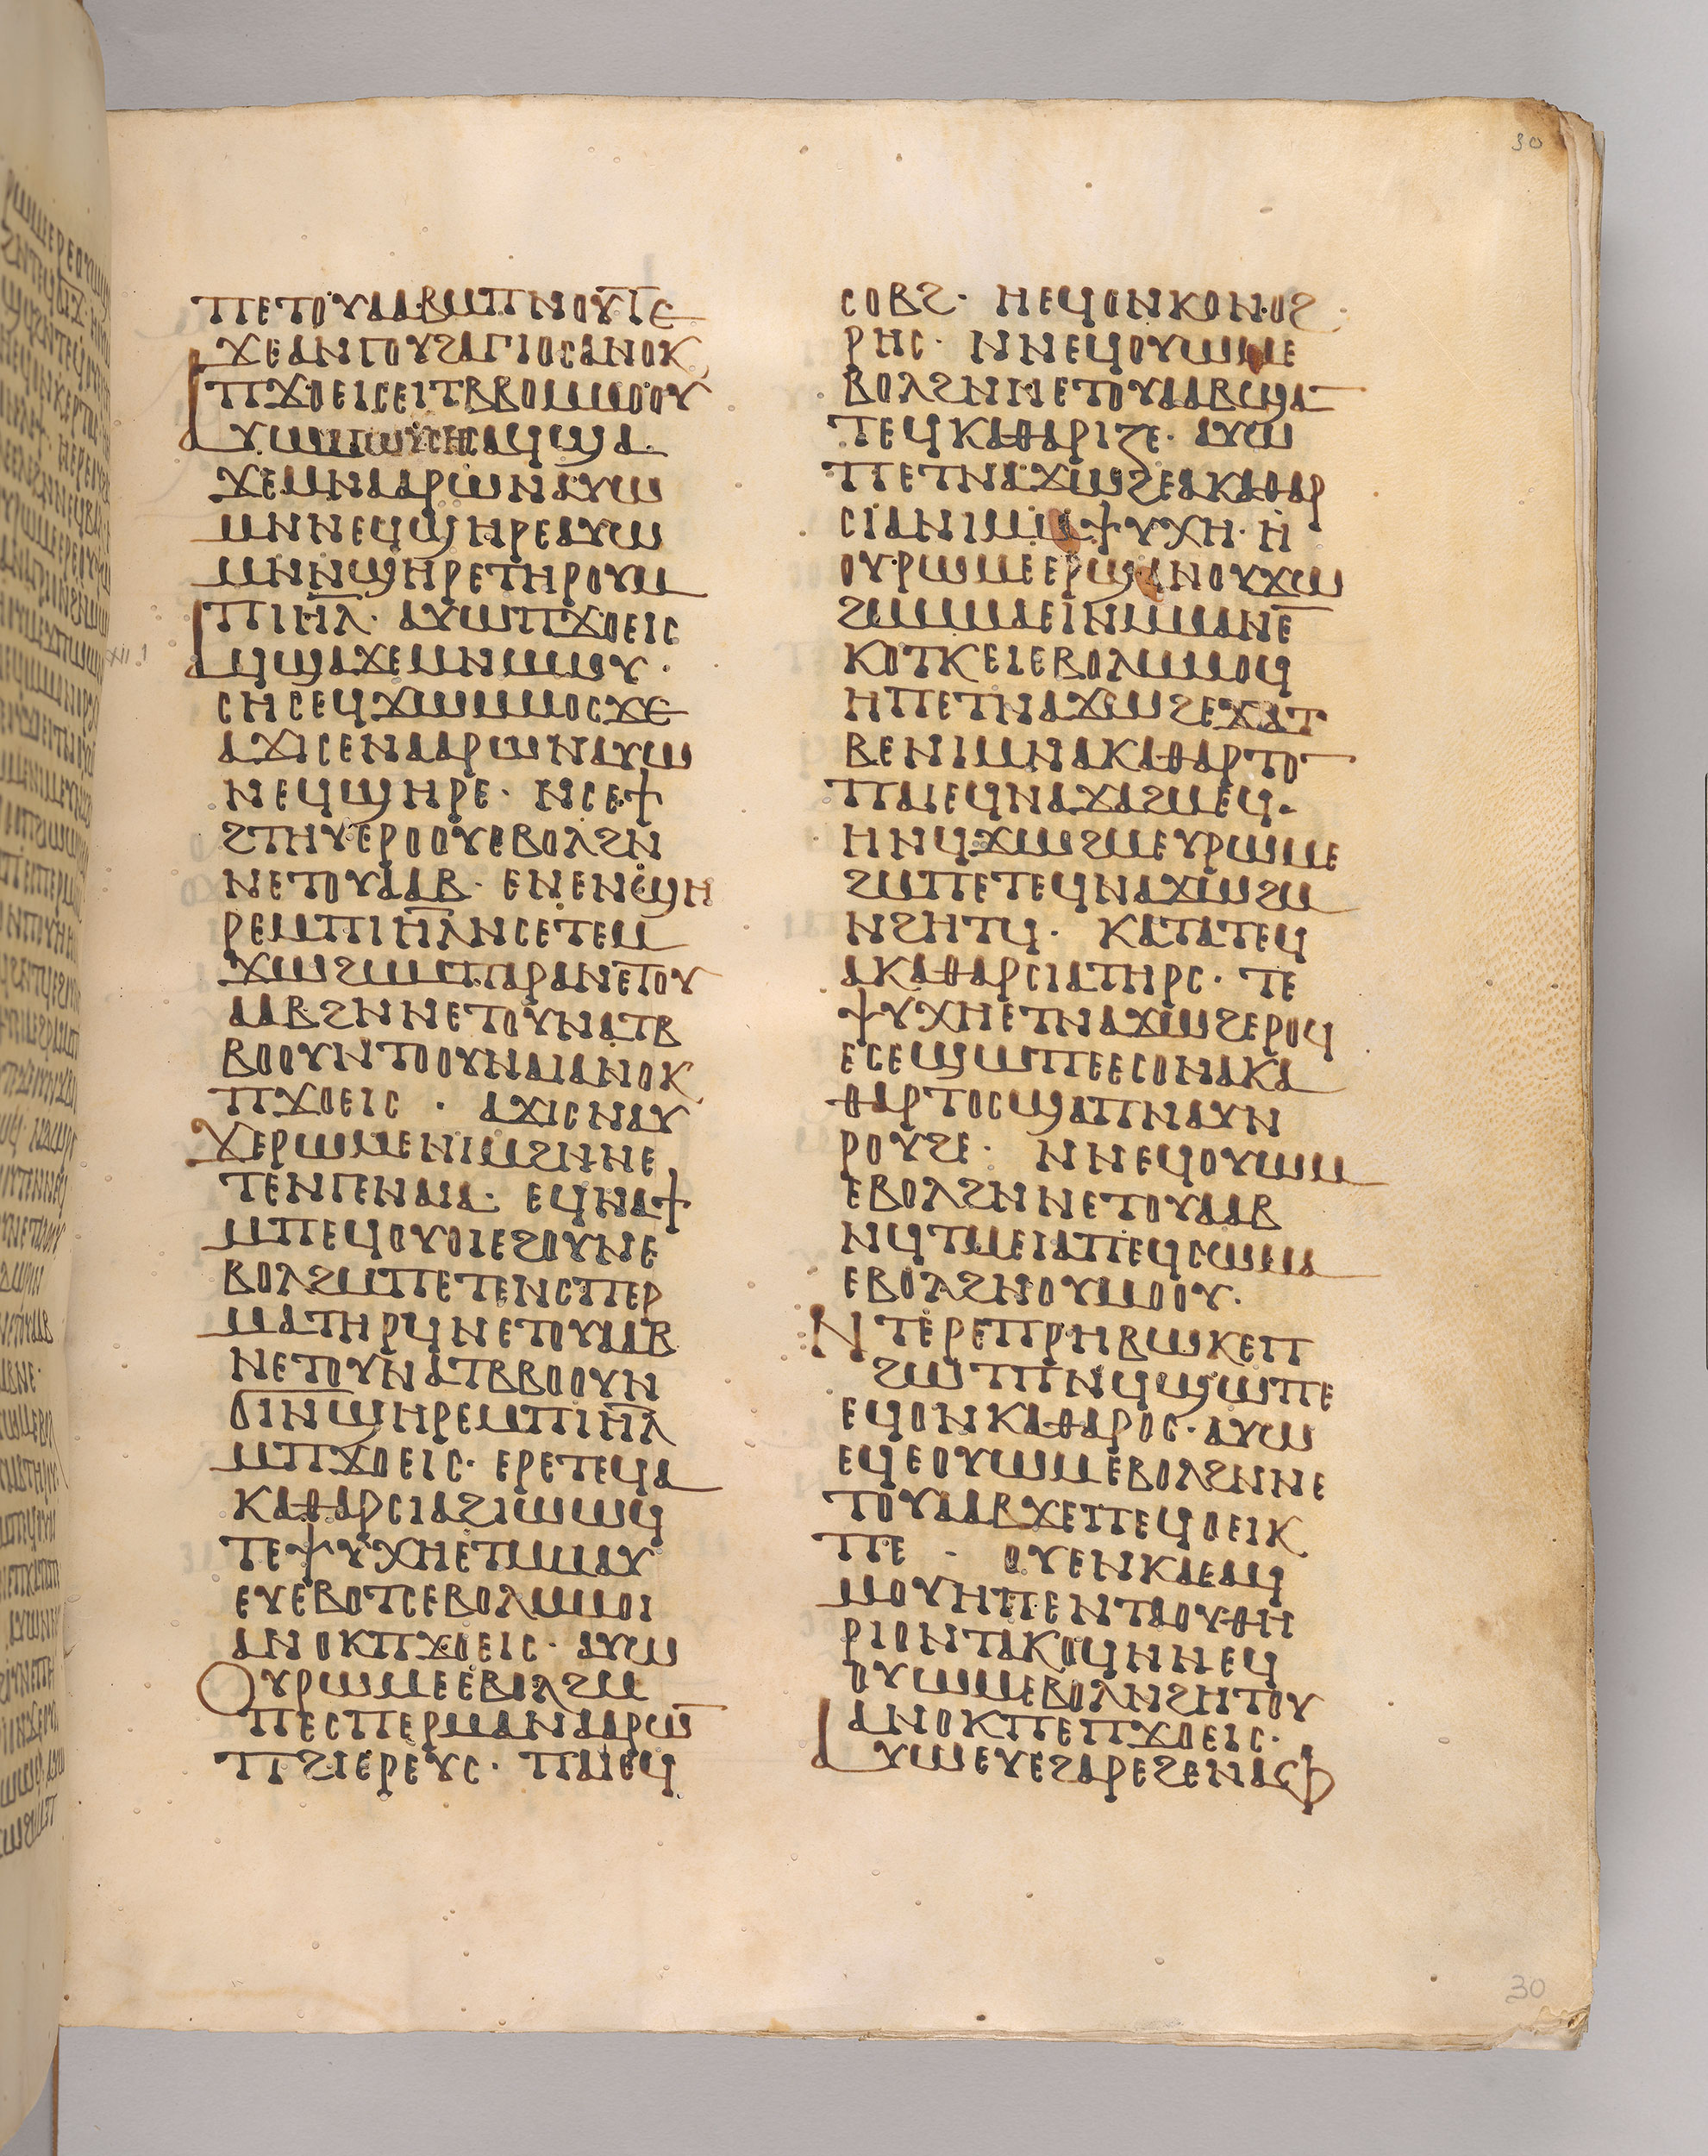 30
ⲡⲉⲧⲟⲩⲁⲁⲃⲙⲡⲛⲟⲩⲧⲉ
ϫⲉⲁⲛⲅⲟⲩϩⲁⲅⲓⲟⲥⲁⲛⲟⲕ
ⲡϫⲟⲉⲓⲥⲉⲓⲧⲃⲃⲟⲙⲙⲟⲟⲩ
ⲁⲩⲱ ⲁϥϣⲁ
ϫⲉⲙⲛⲁⲁⲣⲱⲛⲁⲩⲱ
ⲙⲛⲛⲉϥϣⲏⲣⲉⲁⲩⲱ
ⲙⲛⲛϣⲏⲣⲉⲧⲏⲣⲟⲩⲙ
ⲡⲓⲏ̅ⲗ̅· ⲁⲩⲱⲡϫⲟⲉⲓⲥ
ⲁϥϣⲁϫⲉⲙⲛⲙⲱⲩ·
ⲥⲏⲥⲉϥϫⲱⲙⲙⲟⲥϫⲉ
ⲁϫⲓⲥⲉⲛⲁⲁⲣⲱⲛⲁⲩⲱ
ⲛⲉϥϣⲏⲣⲉ· ⲛⲥⲉϯ
ϩⲧⲏⲩⲉⲣⲟⲟⲩⲉⲃⲟⲗϩⲛ
ⲛⲉⲧⲟⲩⲁⲁⲃ· ⲉⲛⲉⲛϣⲏ
ⲣⲉⲙⲡⲓⲏ̅ⲗ̅ⲛⲥⲉⲧⲉⲙ
ϫⲱϩⲙⲙⲡⲁⲣⲁⲛⲉⲧⲟⲩ
ⲁⲁⲃϩⲛⲛⲉⲧⲟⲩⲛⲁⲧⲃ
ⲃⲟⲟⲩⲛⲧⲟⲟⲩⲛⲁⲓⲁⲛⲟⲕ
ⲡϫⲟⲉⲓⲥ · ⲁϫⲓⲥⲛⲁⲩ
ϫⲉⲣⲱⲙⲉⲛⲓⲙϩⲛⲛⲉ
ⲧⲉⲛⲅⲉⲛⲁⲓⲁ· ⲉϥⲛⲁϯ
ⲙⲡⲉϥⲟⲩⲟⲓⲉϩⲟⲩⲛⲉ
ⲃⲟⲗϩⲙⲡⲉⲧⲉⲛⲥⲡⲉⲣ
ⲙⲁⲧⲏⲣϥⲛⲉⲧⲟⲩⲁⲁⲃ
ⲛⲉⲧⲟⲩⲛⲁⲧⲃⲃⲟⲟⲩⲛ
ϭⲓⲛϣⲏⲣⲉⲙⲡⲓⲏ̅ⲗ̅
ⲙⲡϫⲟⲉⲓⲥ· ⲉⲣⲉⲧⲉϥⲁ
ⲕⲁⲑⲁⲣⲥⲓⲁϩⲓⲱⲱϥ
ⲧⲉⲯⲩⲭⲏⲉⲧⲙⲙⲁⲩ
ⲉⲩⲉⲃⲟⲧⲥⲉⲃⲟⲗⲙⲙⲟⲓ
ⲁⲛⲟⲕⲡϫⲟⲉⲓⲥ· ⲁⲩⲱ
ⲟⲩⲣⲱⲙⲉⲉⲃⲟⲗϩⲙ
ⲡⲉⲥⲡⲉⲣⲙⲁⲛⲁⲁⲣⲱ̅
ⲡϩⲓⲉⲣⲉⲩⲥ· ⲡⲁⲓⲉϥ
ⲥⲟⲃϩ· ⲏⲉϥⲟⲛⲕⲟⲛⲟϩ
ⲣⲏⲥ· ⲛⲛⲉϥⲟⲩⲱⲙⲉ
ⲃⲟⲗϩⲛⲛⲉⲧⲟⲩⲁⲁⲃϣⲁ
ⲧⲉϥⲕⲁⲑⲁⲣⲓⲍⲉ· ⲁⲩⲱ
ⲡⲉⲧⲛⲁϫⲱϩⲉⲁⲕⲁⲑⲁⲣ
ⲥⲓⲁⲛⲓⲙⲙⲯⲩⲭⲏ· ⲏ
ⲟⲩⲣⲱⲙⲉⲉⲣϣⲁⲛⲟⲩϫⲱ
ϩⲙⲙⲁⲉⲓⲛⲙⲙⲁⲛⲉ̅
ⲕⲟⲧⲕⲉⲓⲉⲃⲟⲗⲙⲙⲟϥ
ⲏⲡⲉⲧⲛⲁϫⲱϩⲉϫⲁⲧ
ⲃⲉⲛⲓⲙⲛⲁⲕⲁⲑⲁⲣⲧⲟ̅
ⲡⲁⲓⲉϥⲛⲁϫⲁϩⲙⲉϥ·
ⲏⲛϥϫⲱϩⲙⲉⲩⲣⲱⲙⲉ
ϩⲙⲡⲉⲧⲉϥⲛⲁϫⲱϩⲙ
ⲛϩⲏⲧϥ· ⲕⲁⲧⲁⲧⲉϥ
ⲁⲕⲁⲑⲁⲣⲥⲓⲁⲧⲏⲣⲥ· ⲧⲉ
ⲯⲩⲭⲏⲉⲧⲛⲁϫⲱϩⲉⲣⲟϥ
ⲉⲥⲉϣⲱⲡⲉⲉⲥⲟⲛⲁⲕⲁ
ⲑⲁⲣⲧⲟⲥϣⲁⲡⲛⲁⲩⲛ
ⲣⲟⲩϩⲉ· ⲛⲛⲉϥⲟⲩⲱⲙ
ⲉⲃⲟⲗϩⲛⲛⲉⲧⲟⲩⲁⲁⲃ
ⲛϥⲧⲙⲉⲓⲁⲡⲉϥⲥⲱⲙⲁ
ⲉⲃⲟⲗϩⲛⲟⲩⲙⲟⲟⲩ·
ⲛⲧⲉⲣⲉⲡⲣⲏⲃⲱⲕⲉⲡ
ϩⲱⲧⲡⲛϥϣⲱⲡⲉ
ⲉϥⲟⲛⲕⲁⲑⲁⲣⲟⲥ· ⲁⲩⲱ
ⲉϥⲉⲟⲩⲱⲙⲉⲃⲟⲗϩⲛⲛⲉ
ⲧⲟⲩⲁⲁⲃϫⲉⲡⲉϥⲟⲉⲓⲕ
ⲡⲉ · ⲟⲩⲉⲛⲕⲁⲉⲁϥ
ⲙⲟⲩⲏⲡⲉⲛⲧⲁⲟⲩⲑⲏ
ⲣⲓⲟⲛⲧⲁⲕⲟϥⲛⲛⲉϥ
ⲟⲩⲱⲙⲉⲃⲟⲗⲛϩⲏⲧⲟⲩ
ⲁⲛⲟⲕⲡⲉⲡϫⲟⲉⲓⲥ·
ⲁⲩⲱⲉⲩⲉϩⲁⲣⲉϩⲉⲛⲁⲫ
30